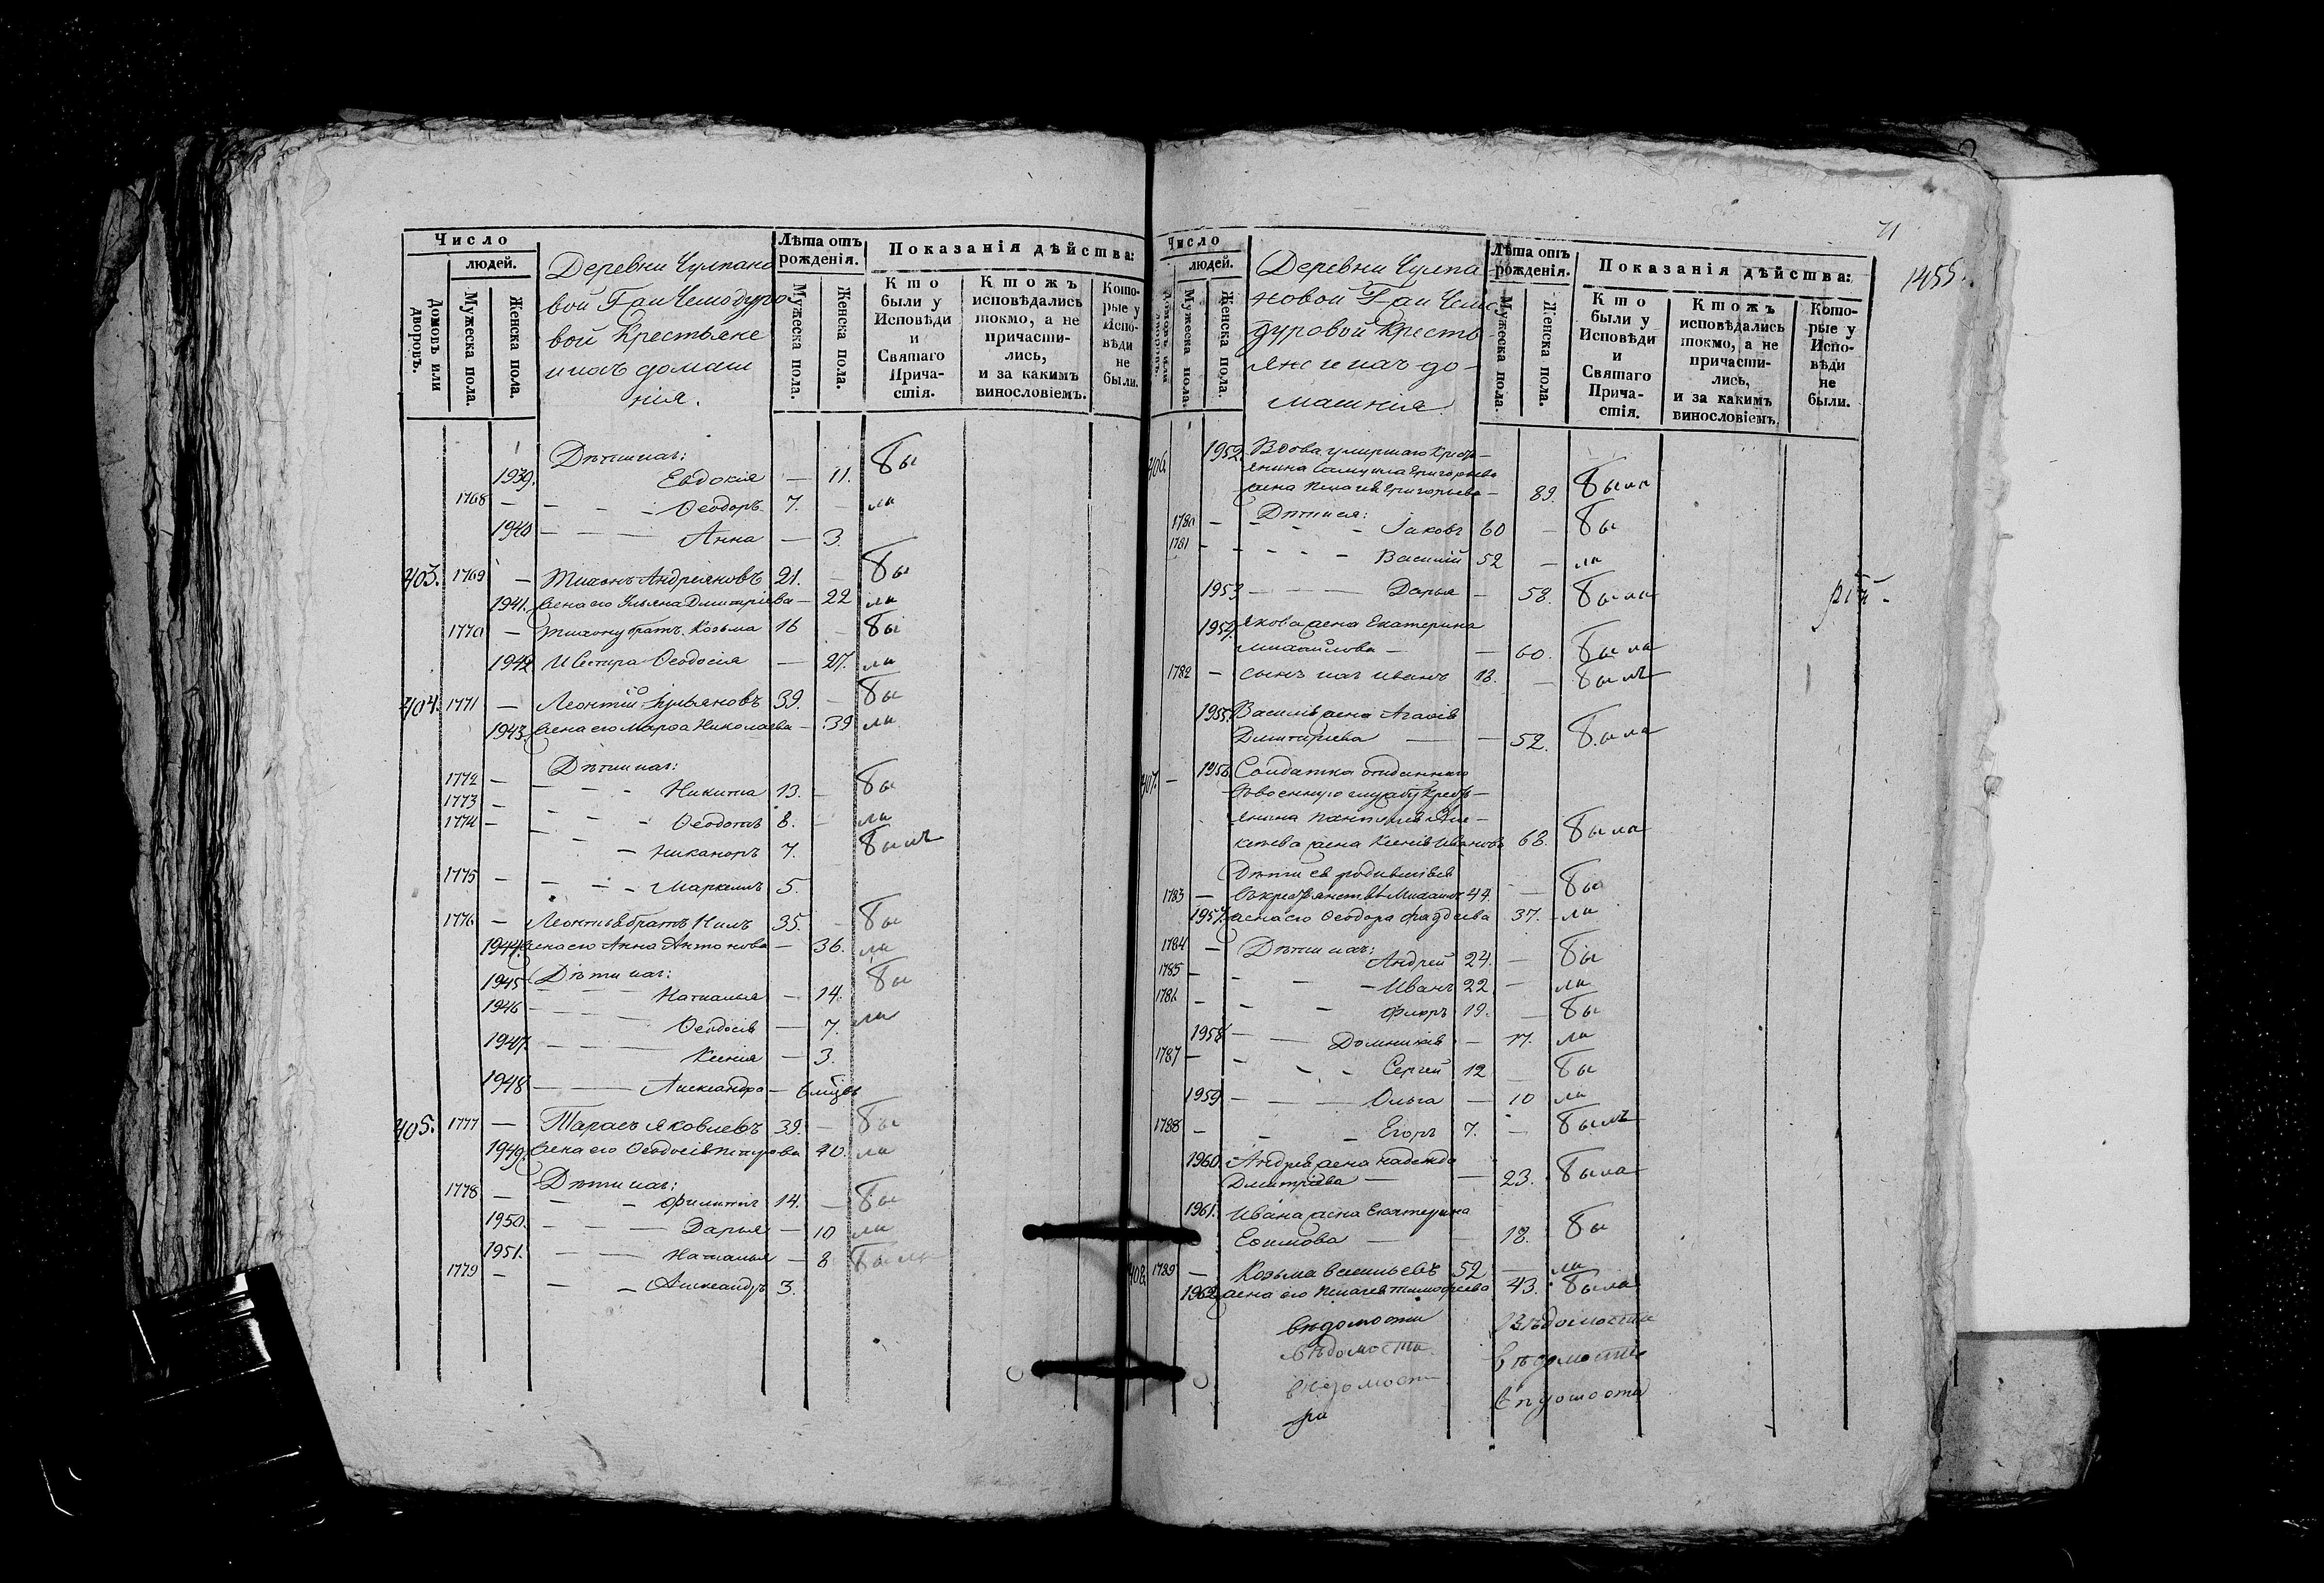 Число
людей.
Домовъ или дворовъ.
Мужеска пола.
Женска пола.
Деревни Чулпано
вой Гаи Чемодуро
вой Крестьяне
и ихъ домаш
нія.
Лѣта отъ рожденія.
Мужеска пола.
Женска пола.
Показанія дѣйства:
Кто были у Исповѣди и Святаго Прича-стія.
Ктожъ исповѣдались токмо, а не причасти-лись, и за какимъ винословіемъ.
Кото-рые у Испо-вѣди не были.
Дѣти ихъ:
1939. Евдокія — 11. Бы
1768 — Ѳеодоръ 7. — ли
1940 — Анна — 3.
403. 1769 — Тихонъ Андреяновъ 21. — Бы
1941. Жена его Ульяна Дмитріева — 22 ли
1770 — Тихону братъ Козьма 16 — Бы
1942 И сестра Ѳеодосія — 27. ли
404. 1771 — Леонтій Лукьяновъ 39. — Бы
1943. Жена его Марѳа Николаева — 39 ли
Дѣти ихъ:
1772 — Никита 13. — Бы
1773 — Ѳеодотъ 8. — ли
1774 — Никаноръ 7. Былъ
1775 — Маркеллъ 5.
1776 — Леонтья братъ Нилъ 35. — Бы
1944. Жена его Анна Антонова — 36. ли
Дѣти ихъ:
1945 Наталья — 14. Бы
1946 Ѳеодосія — 7. ли
1947. Ксенія — 3.
1948 — Александра — 6 мцвъ
405. 1777 — Тарасъ Яковлевъ 39. — Бы
1949. Жена его Ѳеодосія Петрова 40. ли
Дѣти ихъ:
1778 — Филиппъ 14. — Бы
1950. — Дарья — 10 ли
1951. — Наталья — 8 Была
1779 — Александръ 3.
71
1455.
Число
людей.
Мужеска пола.
Женска пола.
Деревни Чулпа
новой Гаи Чемо
дуровой Кресть
яне и ихъ до-
машнія.
Лѣта отъ рожденія.
Мужеска пола.
Женска пола.
Показанія дѣйства:
Кто были у Исповѣди и Святаго Прича-стія.
Ктожъ исповѣдались токмо, а не причасти-лись, и за какимъ винословіемъ.
Кото-рые у Испо-вѣди не были.
406. 1952. Вдова умершаго Кресть-
янина Самуила Григорьева
жена Пелагея Григорьева — 89. Была
Дѣти ея:
1780 — Іаковъ 60 — Бы
1781 — Василій 52 — ли
1953 — Дарья — 58. Была
1954. Якова жена Екатерина
Михайлова — — 60. Была
1782 — сынъ ихъ Иванъ 18. — Былъ
1955. Василія жена Агафія
Дмитриева — — 52. Была
407. — 1956 Солдатка отданнаго
въ военную службу Кресть-
янина Пантелея
жена Ксенія Иванова 68. Была
Дѣти ея родившіяся
1783 — въ крестьянствѣ Михаилъ 44. — Бы
1957. жена его Ѳеодора Фаддеева 37. — ли
Дѣти ихъ:
1784 — Андрей 24. — Бы
1785 — Иванъ 22 — ли
1786 — Флоръ 19. — Бы
1958 — Домникія — 17. ли
1787 — Сергей 12 — Бы
1959 — Ольга — 10 ли
1788 — Егоръ 7. — Былъ
1960. Андрея жена Надежда
Дмитріева — — 23. Была
1961. Ивана жена Екатерина
Ефимова — — 18. Бы
408. 1789 — Козьма Васильевъ 52 — ли
1962 жена его Пелагея Тимофеева 43. Была
вѣдомости Вѣдомости
вѣдомости вѣдомости
вѣдомост вѣдомости